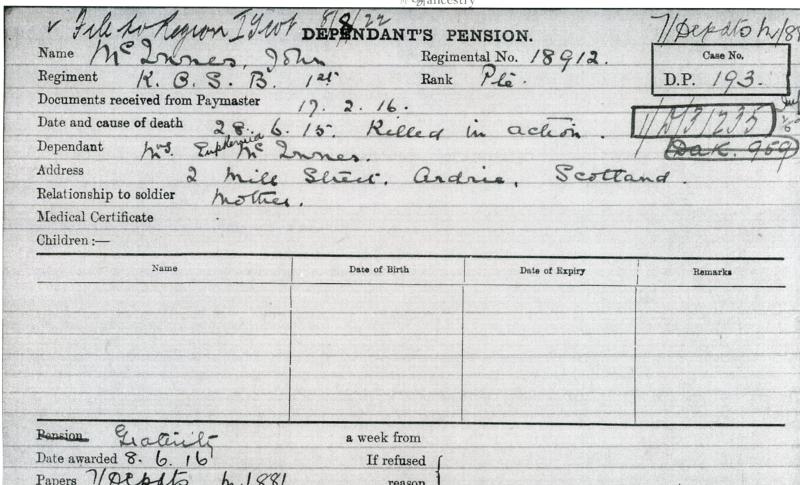 ancestry
✓ File to Region I Scot 8/8/22
DEPENDANT'S PENSION.
7/Depdts/M/188
Name McInnes, John Regimental No. 18912. Case No.
Regiment K.O.S.B. 1st Rank Pte. D.P. 193.
Documents received from Paymaster 17. 2. 16.
Date and cause of death 28. 6. 15. Killed in action. 1/D/M/235
Dependant Mrs. Euphemia McInnes. DAK. 959
Address 2 Mill Street, Ardrie, Scotland.
Relationship to soldier Mother.
Medical Certificate
Children:—
Name Date of Birth Date of Expiry Remarks
Pension Gratuity a week from
Date awarded 8. 6. 16 If refused {
Papers 7/Depdts M.1881 reason